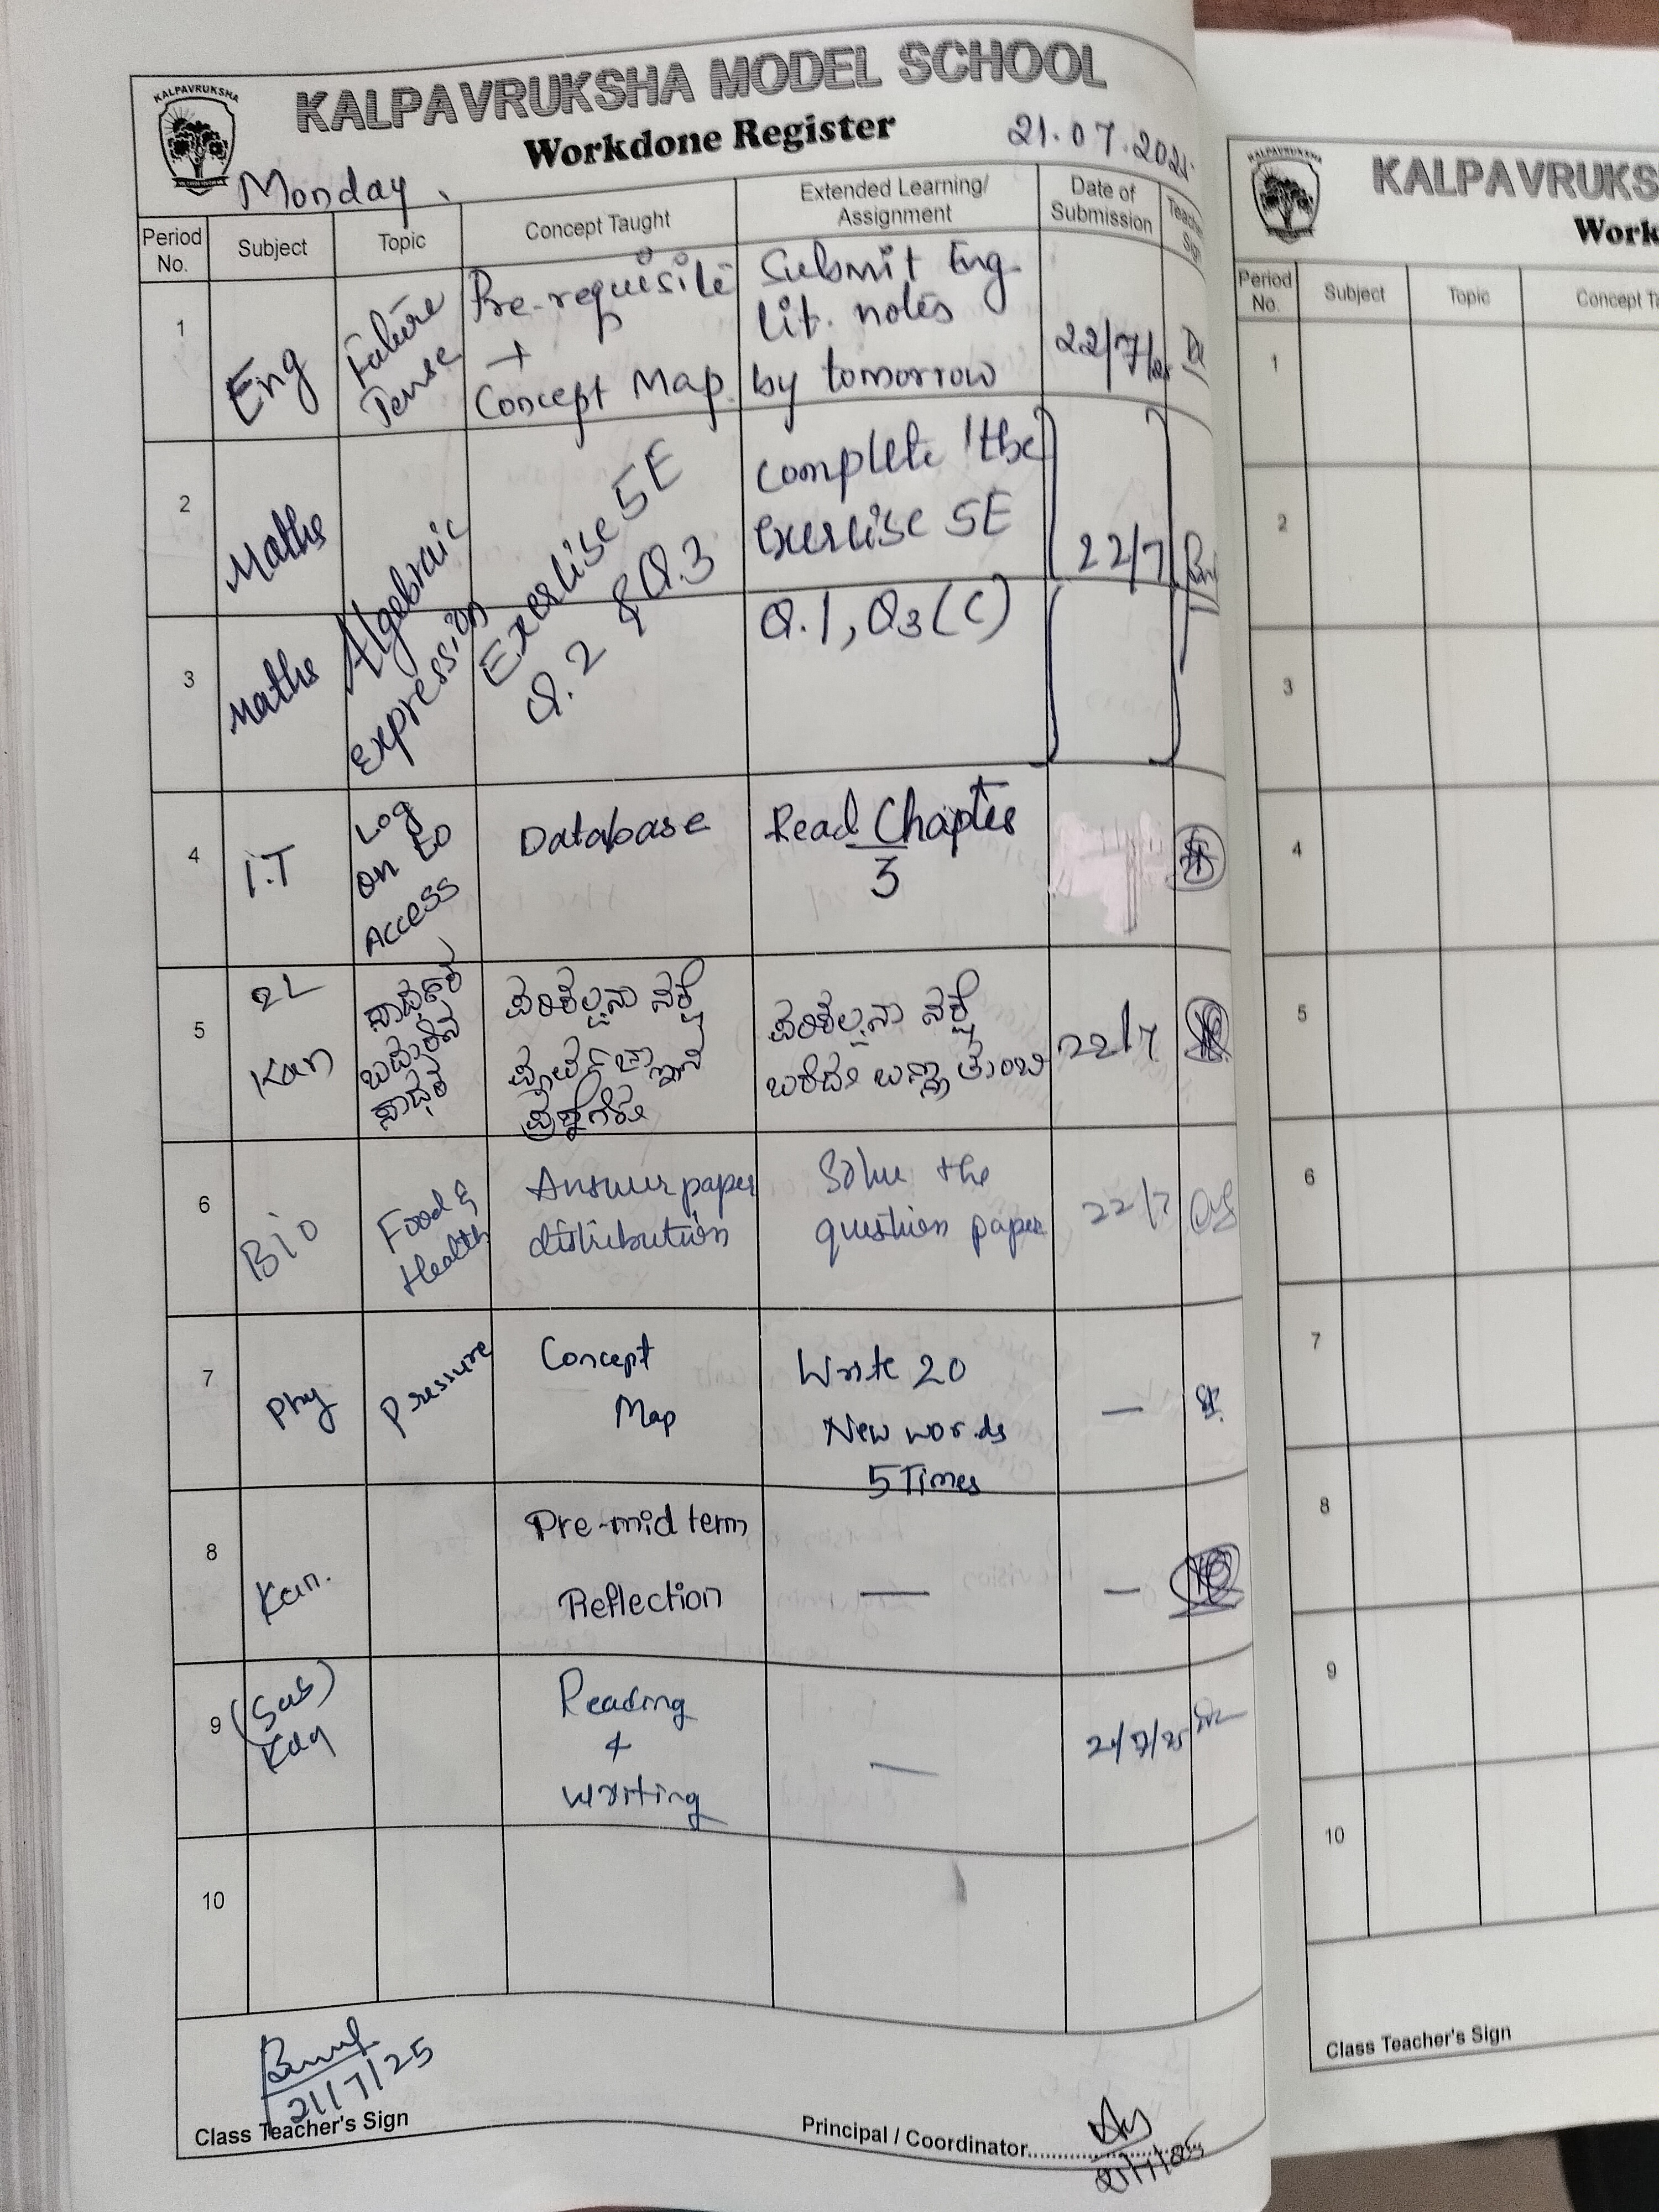 KALPAVRUKSHA
KALPAVRUKSHA MODEL SCHOOL
Workdone Register
21.07.2025
Monday
Period No.
Subject
Topic
Concept Taught
Extended Learning/
Assignment
Date of
Submission
1
Eng
Future
Tense
Pre-requisite
+
Concept Map.
Submit Eng
lit. notes
by tomorrow
22/7/25
2
Maths
3
Maths
Algebraic
Expression
Exercise 5E
Q.2 & Q.3
Complete the
Exercise 5E
Q.1, Q3(C)
22/7
4
I.T
Log
on to
Access
Database
Read Chapter
3
5
2L
Kan
ಪರಿಕಲ್ಪನಾ ನಕ್ಷೆ
ಪೂರ್ವಜ್ಞಾನ
ಪ್ರಶ್ನೆಗಳು
ಪರಿಕಲ್ಪನಾ ನಕ್ಷೆ
22/7
6
Bio
Food &
Health
Answer paper
distribution
Solve the
question paper
22/7
7
Phy
Pressure
Concept
Map
Write 20
New words
5 Times
—
8
Kan.
Pre-mid term
Reflection
—
—
9
(Sub)
Reading
&
writing
—
21/7/25
10
21/7/25
Class Teacher's Sign
Principal / Coordinator
21/7/25
KALPAVRUKSHA
KALPAVRUKS
Work
Period
No.
Subject
Topic
Concept Ta
1
2
3
4
5
6
7
8
9
10
Class Teacher's Sign